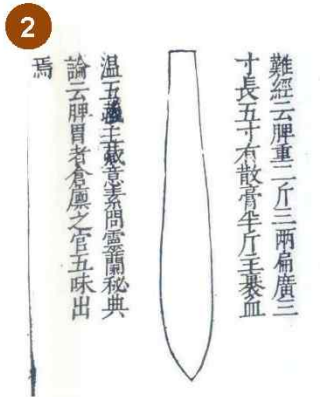 2
難經云脾重二斤三兩扁廣三
寸長五寸有散膏半斤主裹血
温五藏主藏意素問靈蘭秘典
論云脾胃者倉廩之官五味出
焉